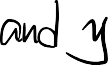 and y